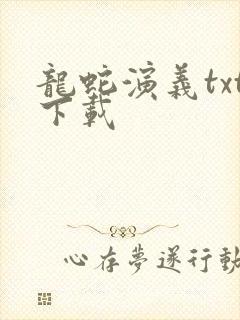 龍蛇演義txt
下載
心存夢遂行動